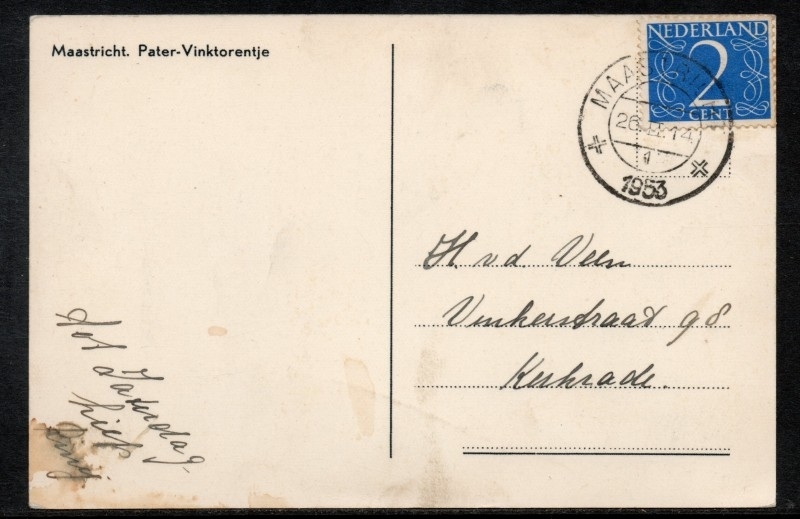 Maastricht. Pater-Vinktorentje
NEDERLAND
2
CENT
MAAST
26.II.14
1
1953
H. v. d. Veen
Vinkerstraat 98
Kerkrade.
tot Zaterdag.
liefs